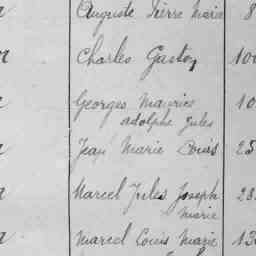 Auguste Pierre Marie 8
Charles Gaston 10
Georges Maurice 10
adolphe Jules
Jean Marie Louis 25
Marcel Jules Joseph 28
Marie
Marcel Louis Marie 13